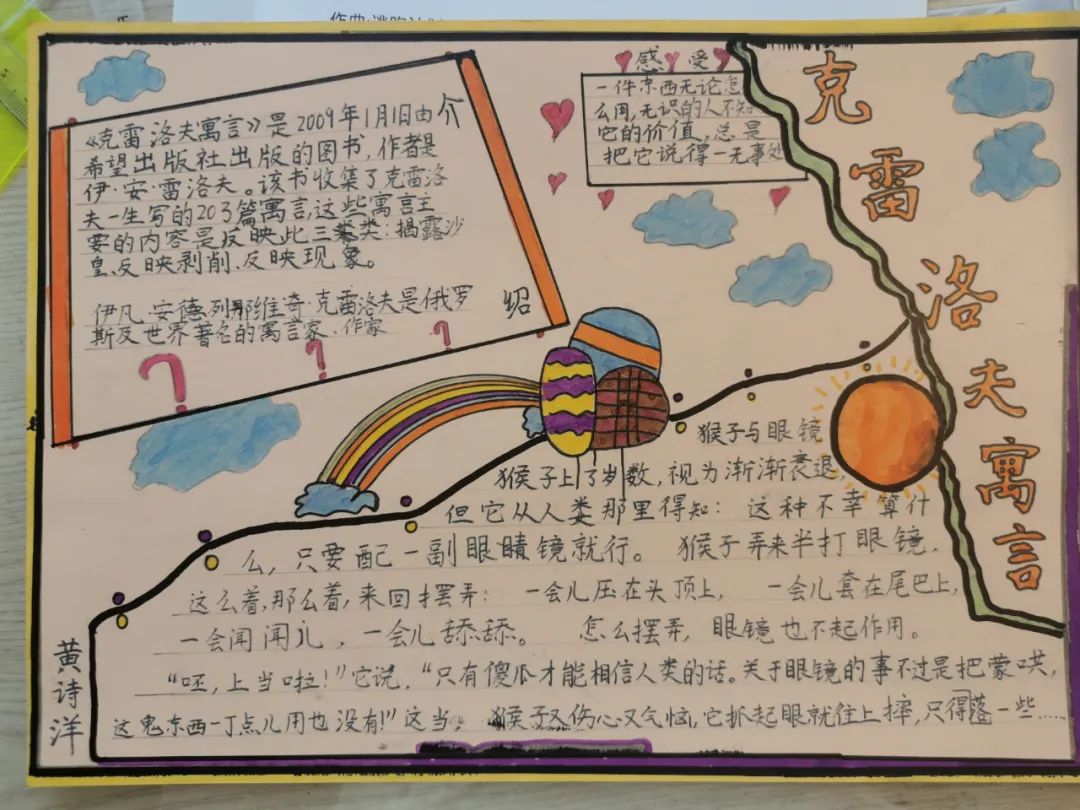 克雷洛夫寓言
介绍
《克雷洛夫寓言》是2009年1月1日由
希望出版社出版的图书，作者是
伊·安·雷洛夫。该书收集了克雷洛
夫一生写的203篇寓言，这些寓言主
要的内容是反映此三类类：揭露沙
皇、反映剥削、反映现象。
伊凡·安德列那维奇·克雷洛夫是俄罗
斯及世界著名的寓言家、作家
感受
一件东西无论怎
么用，无识的人不知
它的价值，总是
把它说得一无事处
猴子与眼镜
猴子上了岁数，视为渐渐衰退，
但它从人娄那里得知：这种不幸算什
么，只要配一副眼睛镜就行。猴子弄来半打眼镜，
这么着，那么着，来回摆弄：一会儿压在头顶上，一会儿套在尾巴上，
一会闻闻儿，一会儿舔舔。怎么摆弄，眼镜也不起作用。
“呸，上当啦！”它说，“只有傻瓜才能相信人类的话。关于眼镜的事不过是把蒙哄，
这鬼东西一丁点儿用也没有！”这当，猴子又伤心又气恼，它抓起眼就往上摔，只得落一些……
黄诗洋